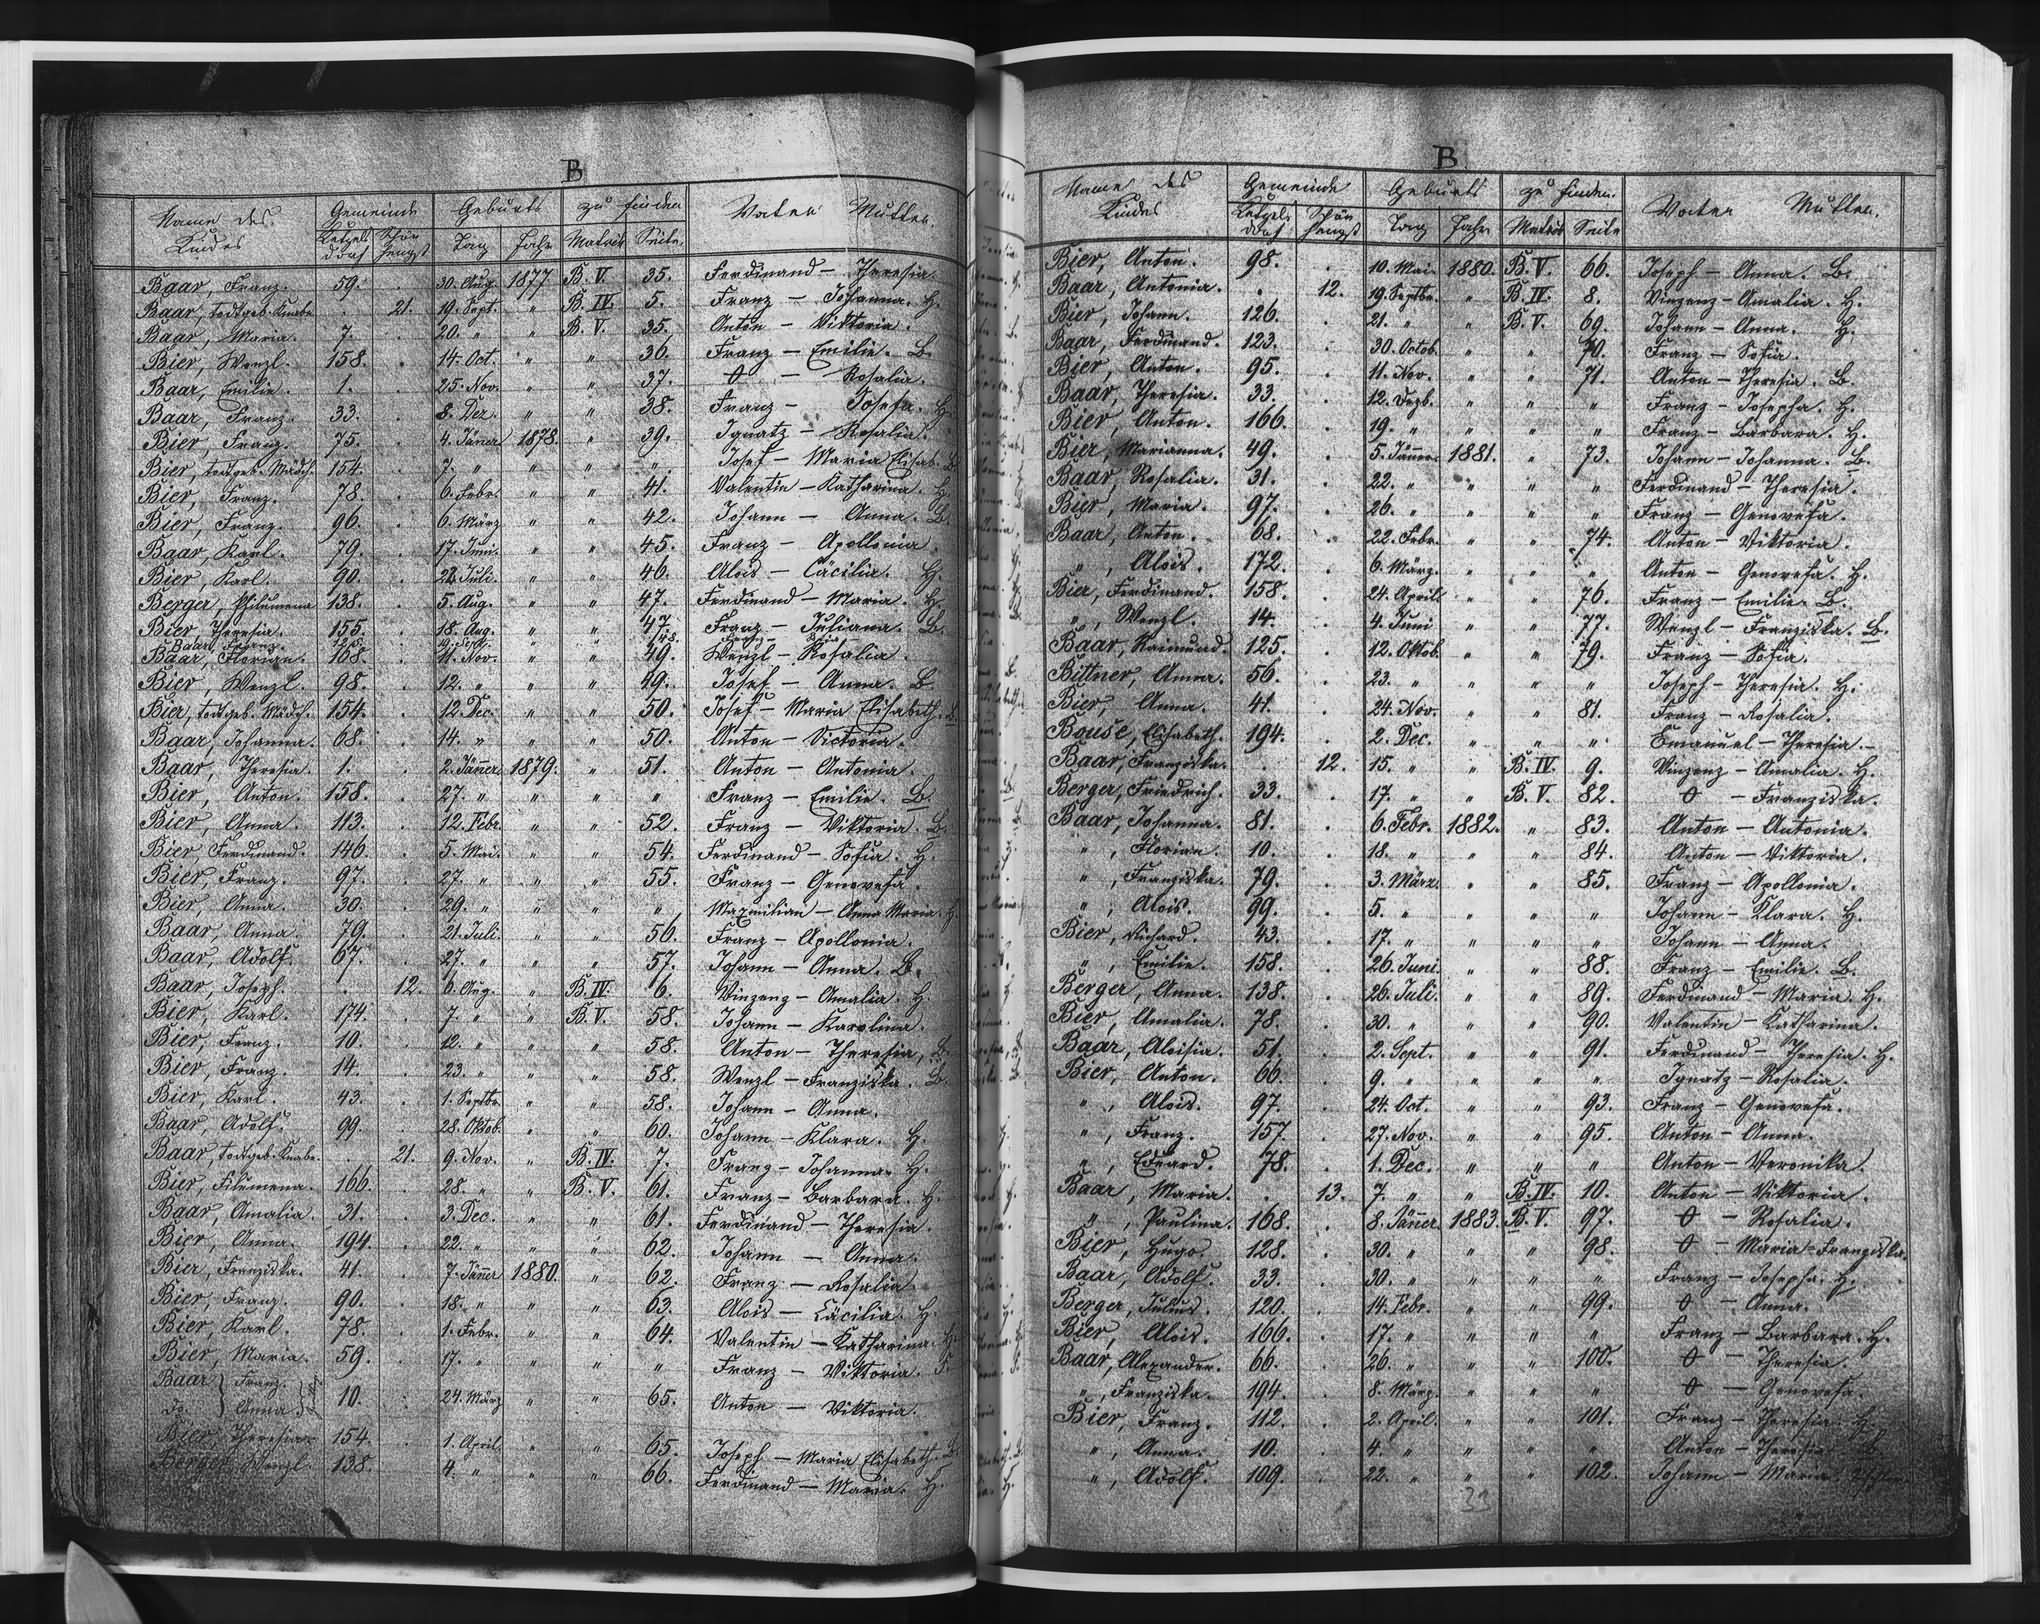 B
Name des Kindes Gemeinde Geburts zu finden Vater Mutter
Ketzelsdorf Schönhengst Tag Jahr Matrik Seite
Baar, Franz. 59. . 30. Aug. 1877 B. V. 35. Ferdinand – Theresia.
Baar, todtgeb. Knabe . 21. 19. Sept. " B. IV. 5. Franz – Johanna. H.
Baar, Maria. 7. . 20. " " B. V. 35. Anton – Viktoria.
Bier, Wenzl. 158. . 14. Oct. " " 36. Franz – Emilie. B.
Baar, Emilie. 1. . 25. Nov. " " 37. 0 – Rosalia.
Baar, Franz. 33. . 8. Dez. " " 38. Franz – Josefa. H.
Bier, Franz. 75. . 4. Jäner 1878. " 39. Ignatz – Rosalia.
Bier, todtgeb. Mädch. 154. . 7. " " " " Josef – Maria Elisab. B.
Bier, Franz. 78. . 6. Febr. " " 41. Valentin – Katharina. H.
Bier, Franz. 96. . 6. März " " 42. Johann – Anna. B.
Baar, Karl. 79. . 17. Juni. " " 45. Franz – Apollonia.
Bier, Karl. 90. . 28. Juli. " " 46. Alois – Cäcilia. H.
Berger, Philumena 138. . 5. Aug. " " 47. Ferdinand – Maria. H.
Bier Theresia. 155. . 18. Aug. " " 47. Franz – Juliana. B.
Baar, Franz. 125. 19. Sept. " " 48. Franz –
Baar, Florian. 168. . 11. Nov. " " 49. Wenzl – Rosalia.
Bier, Wenzl. 98. . 12. " " " 49. Josef – Anna. B.
Bier, todtgeb. Mädch. 154. . 12. Dec. " " 50. Josef – Maria Elisabeth. B.
Baar, Johanna. 68. . 14. " " " 50. Anton – Victoria.
Baar Theresia. 1. . 2. Jänner 1879. " 51. Anton – Antonia.
Bier, Anton. 158. . 27. " " " " Franz – Emilie. B.
Bier, Anna. 113. . 12. Febr. " " 52. Franz – Viktoria. B.
Bier, Ferdinand. 146. . 5. Mai. " " 54. Ferdinand – Sofia. H.
Bier, Franz. 97. . 27. " " " 55. Franz – Genovefa.
Bier, Anna. 30. . 29. " " " " Maxmilian – Anna Maria. H.
Baar, Anna. 79. . 21. Juli. " " 56. Franz – Apollonia.
Baar, Adolf. 67. . 27. " " " 57. Johann – Anna. B.
Baar, Joseph. . 12. 6. Aug. " B. IV. 6. Vinzenz – Amalia. H.
Bier, Karl. 174. . 7. " " B. V. 58. Johann – Karolina.
Bier, Franz. 10. . 12. " " " 58. Anton – Theresia, B.
Bier, Franz. 14. . 23. " " " 58. Wenzl – Franziska. B.
Bier, Karl. 43. . 1. Septbr. " " 58. Johann – Anna.
Baar, Adolf. 99. . 28. Oktob. " " 60. Johann – Klara. H.
Baar, todtgeb. Knabe. . 21. 9. Nov. " B. IV. 7. Franz – Johanna. H.
Bier, Filumena. 166. . 28. " " B. V. 61. Franz – Barbara. H.
Baar, Amalia. 31. . 3. Dec. " " 61. Ferdinand – Theresia.
Bier, Anna. 194. . 22. " " " 62. Johann – Anna.
Bier, Franziska. 41. . 7. Jäner 1880. " 62. Franz – Rosalia.
Bier, Franz. 90. . 18. " " " 63. Alois – Cäcilia. H.
Bier, Karl. 78. . 1. Febr. " " 64. Valentin – Katharina. H.
Bier, Maria. 59. . 17. " " " " Franz – Viktoria.
Baar } Franz.
do. } Anna } 10. . 24. März " " 65. Anton – Viktoria.
Bier, Theresia. 154. . 1. April. " " 65. Joseph – Maria Elisabeth. B.
Berger, Wenzl. 138. . 4. " " " 66. Ferdinand – Maria. H.
B
Name des Kindes Gemeinde Geburts zu finden Vater Mutter.
Ketzelsdorf Schönhengst Tag Jahr Matrik Seite
Bier, Anton. 98. . 10. Mai. 1880. B. V. 66. Joseph – Anna. B.
Baar, Antonia. . 12. 19. Septbr. " B. IV. 8. Vinzenz – Amalia. H.
Bier, Johann. 126. . 21. " " B. V. 69. Johann – Anna. H.
Baar, Ferdinand. 123. . 30. Octob. " " 70. Franz – Sofia.
Bier, Anton. 95. . 11. Nov. " " 71. Anton – Theresia. B.
Baar, Theresia. 33. . 12. Dezb. " " " Franz – Josepha. H.
Bier, Anton. 166. . 19. " " " " Franz – Barbara. H.
Bier, Marianna. 49. . 5. Jänner 1881. " 73. Johann – Johanna. B.
Baar, Rosalia. 31. . 22. " " " " Ferdinand – Theresia.
Bier, Maria. 97. . 26. " " " " Franz – Genovefa.
Baar, Anton. 68. . 22. Febr. " " 74. Anton – Viktoria.
" , Alois. 172. . 6. März. " " " Anton – Genovefa. H.
Bier, Ferdinand. 158. . 24. April " " 76. Franz – Emilie. B.
" , Wenzl. 14. . 4. Juni " " 77. Wenzl – Franziska. B.
Baar, Raimund. 125. . 12. Oktob. " " 79. Franz – Sofia.
Bittner, Anna. 56. . 23. " " " " Joseph – Theresia. H.
Bier, Anna. 41. . 24. Nov. " " 81. Franz – Rosalia.
Bouse, Elisabeth. 194. . 2. Dec. " " " Emanuel – Theresia.
Baar, Franziska. . 12. 15. " " B. IV. 9. Vinzenz – Amalia. H.
Berger, Friedrich. 33. . 17. " " B. V. 82. 0 – Franziska.
Baar, Johanna. 81. . 6. Febr. 1882. " 83. Anton – Antonia.
" , Florian. 10. . 18. " " " 84. Anton – Viktoria.
" , Franziska. 79. . 3. März. " " 85. Franz – Apollonia.
" , Alois. 99. . 5. " " " " Johann – Klara. H.
Bier, Richard. 43. . 17. " " " " Johann – Anna.
" , Emilie. 158. . 26. Juni. " " 88. Franz – Emilie. B.
Berger, Anna. 138. . 26. Juli. " " 89. Ferdinand – Maria. H.
Bier, Amalia. 78. . 30. " " " 90. Valentin – Katharina.
Baar, Aloisia. 51. . 2. Sept. " " 91. Ferdinand – Theresia. H.
Bier, Anton. 66. . 9. " " " " Ignatz – Rosalia.
" , Alois. 97. . 24. Oct. " " 93. Franz – Genovefa.
" , Franz. 157. . 27. Nov. " " 95. Anton – Anna.
" , Eduard. 78. . 1. Dec. " " " Anton – Veronika.
Baar, Maria. . 13. 7. " " B. IV. 10. Anton – Viktoria.
" , Paulina. 168. . 8. Jänner 1883. B. V. 97. 0 – Rosalia.
Bier, Hugo. 128. . 30. " " " 98. 0 – Maria Franziska.
Baar, Adolf. 33. . 30. " " " " Franz – Josepha. H.
Berger, Julius. 120. . 14. Febr. " " 99. 0 – Anna.
Bier, Alois. 166. . 17. " " " " Franz – Barbara. H.
Baar, Alexander. 66. . 26. " " " 100. 0 – Theresia.
" , Franziska. 194. . 8. März. " " " 0 – Genovefa.
Bier, Franz. 112. . 2. April. " " 101. Franz – Theresia. H.
" , Anna. 10. . 4. " " " " Anton – Theresia.
" , Adolf. 109. . 22. " " " 102. Johann – Maria.